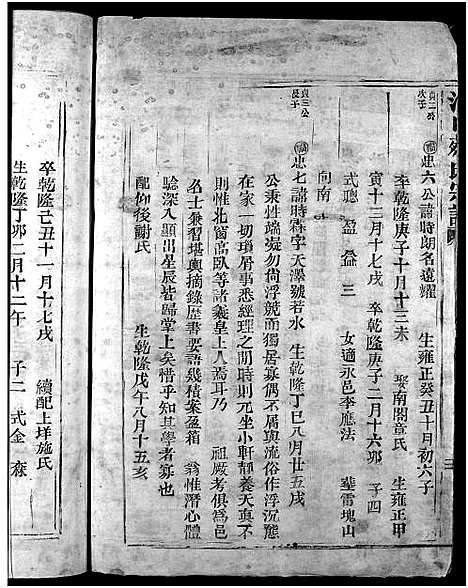 貞二公
次子
忠六公諱時朗名遠耀 生雍正癸丑十月初六子
卒乾隆庚子十月十三未 娶南閣章氏 生雍正甲
寅十二月十七戌 卒乾隆庚子二月十六卯 子四
式聽 盈 益 三 女適永邑李應法 葬雷塊山
向南
貞三公
長子
忠七諱時霖字天澤號若水 生乾隆丁巳八月廿五戌
公秉性端凝勿倘浮競而獨居寡偶不屑與流俗作浮沉態
在家一切瑣屑事悉經理之閒時則元坐小軒靜養天真以
則惟北窗高臥等諸羲皇上人焉耳乃 祖厳考俱爲邑
名士兼習堪輿摘錄歷書要語幾積案盈箱 翁惟潛心體
騐深入顯出星辰皆歸掌上矣惜乎知其學者寡也
配仰後謝氏 生乾隆戊午八月十五亥
卒乾隆己丑十一月十七戌 續配上垟施氏
生乾隆丁卯二月十二午 子二 式金 森
宗譜